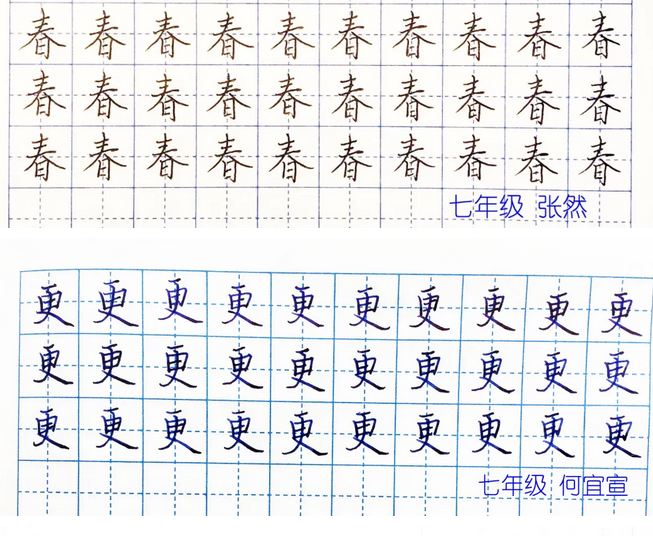 春春春春春春春春春春
春春春春春春春春春春
春春春春春春春春春春
七年级 张然
更更更更更更更更更更
更更更更更更更更更更
更更更更更更更更更更
七年级 何宜宣